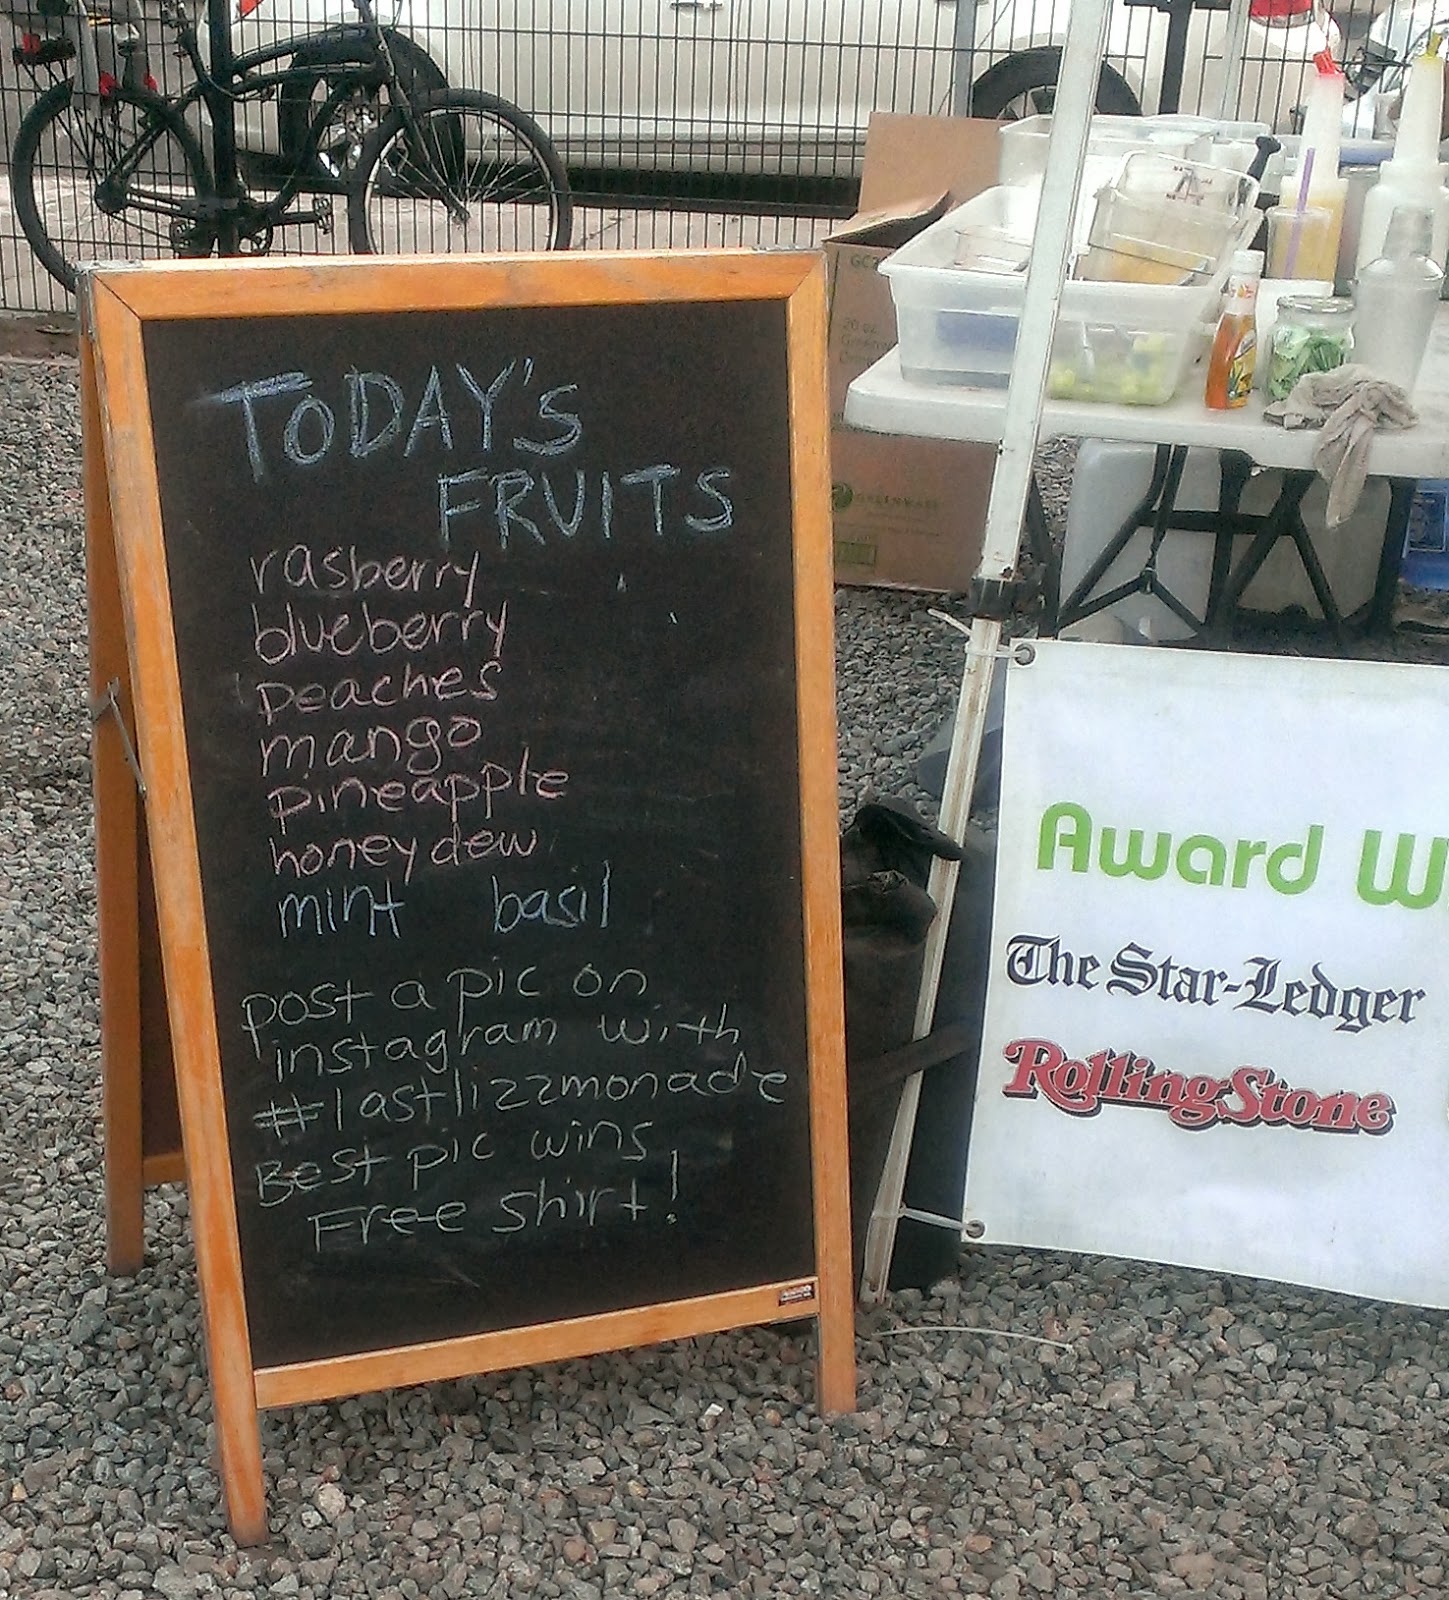 TODAY'S
FRUITS
rasberry
blueberry
peaches
mango
pineapple
honeydew
mint basil
post a pic on
instagram with
#lastlizzmonade
Best pic wins
Free shirt!
GC2
20 oz
Greenw
GREENWARE
Award W
The Star-Ledger
RollingStone